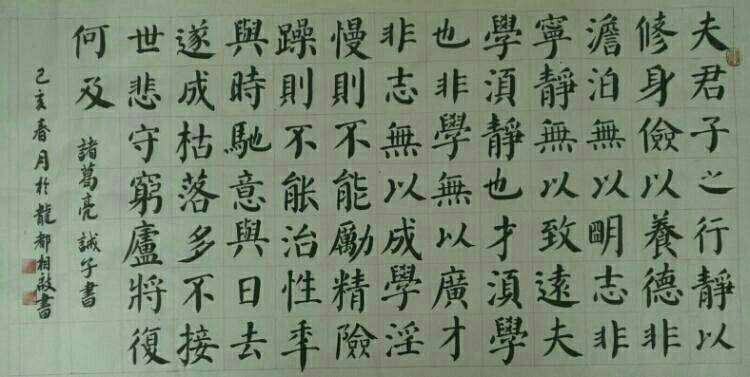 夫君子之行靜以
修身儉以養德非
澹泊無以眀志非
寧靜無以致遠夫
學湏靜也才湏學
也非學無以廣才
非志無以成學淫
慢則不能勵精險
躁則不能治性秊
與時馳意與日去
遂成枯落多不接
世悲守窮廬將復
何及 諸葛亮誡子書
己亥春月於龍都相啟書